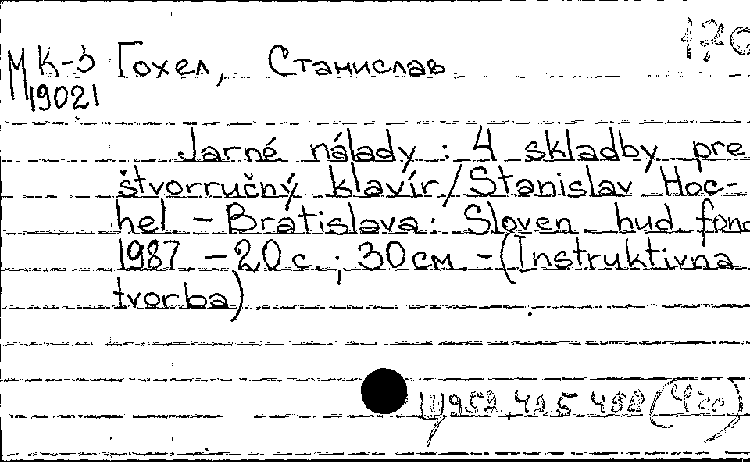 МК-3 Гохел, Станислав
19021
Jarné nálady : 4 skladby pre
štvorručný klavír/Stanislav Hoc-
hel – Bratislava: Sloven hud fond
1987 – 20 с. ; 30 см – (Instruktivna
tvorba)